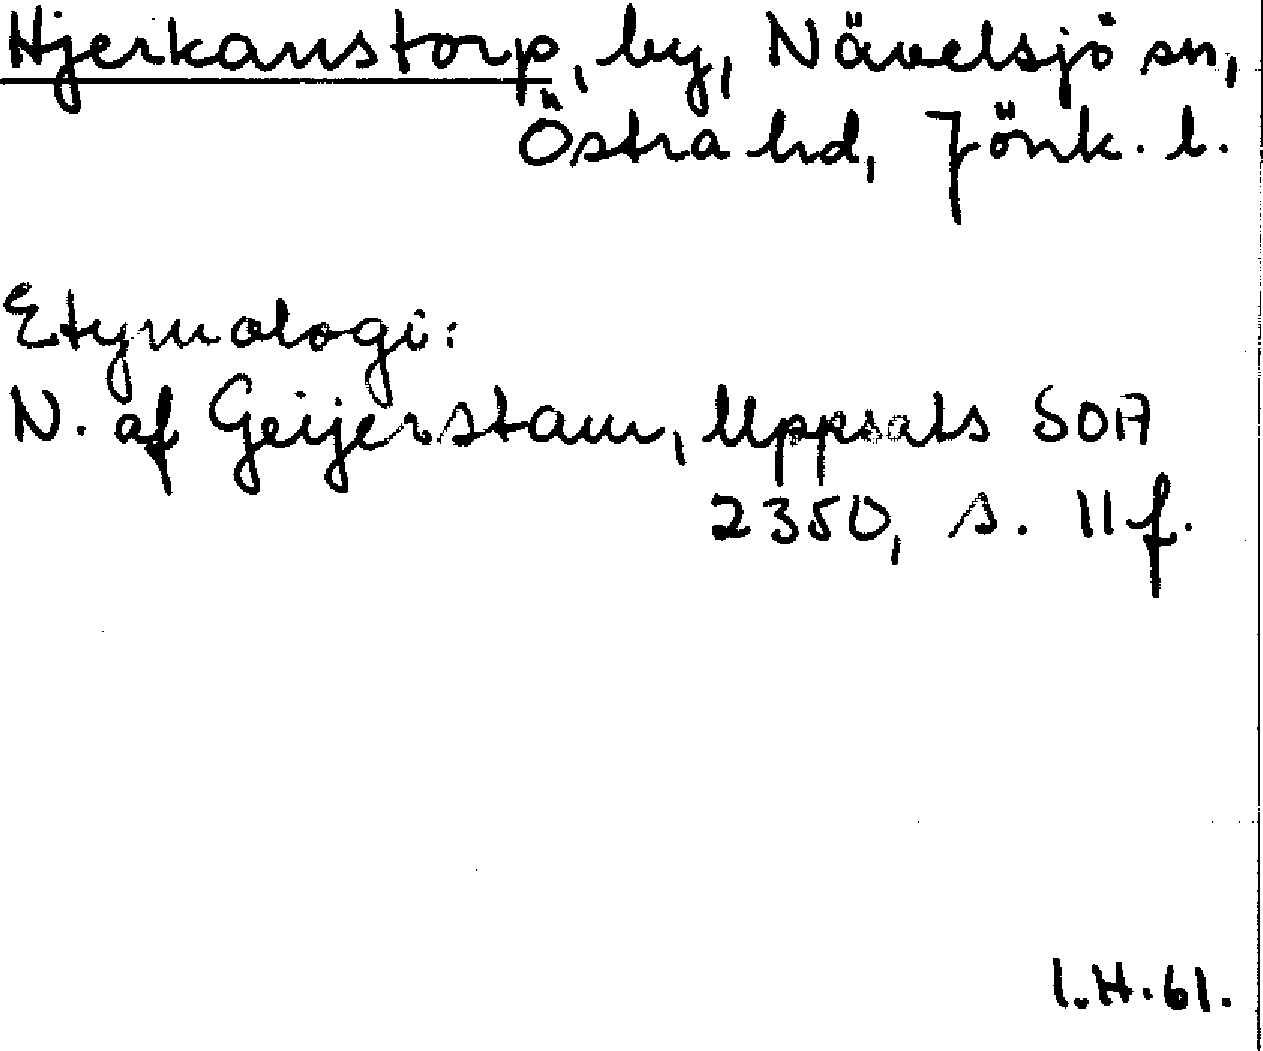 Hjerkanstorp, by, Nävelsjö sn,
Östra hd, Jönk. l.
Etymologi:
N. af Geijerstam, Uppsats SOA
2350, s. 11 f.
I.H.61.